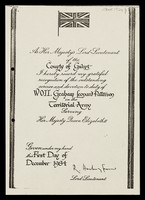 As Her Majesty's Lord-Lieutenant
of the
County of
I hereby record my grateful
recognition of the outstanding
service and devotion to duty of
WOII Graham Leonard Patterson
in the
Territorial Army
Serving
Her Majesty Queen Elizabeth II
Given under my hand
the First Day of
December 1984
Lord-Lieutenant